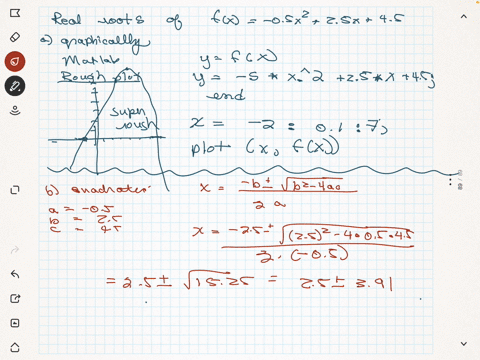 Real roots of f(x) = -0.5x² + 2.5x + 4.5
a) graphically
Matlab
Rough plot
super
rough
y = f(x)
y = -5 * x.^2 + 2.5 * x + 4.5;
end
x = -2 : 0.1 : 7;
plot (x, f(x))
b) quadratic:
a = -0.5
b = 2.5
c = 4.5
x = -b ± √b²-4ac / 2a
x = -2.5 ± √(2.5)² - 4·0.5·4.5 / 2·(-0.5)
= 2.5 ± √15.25 = 2.5 ± 3.91